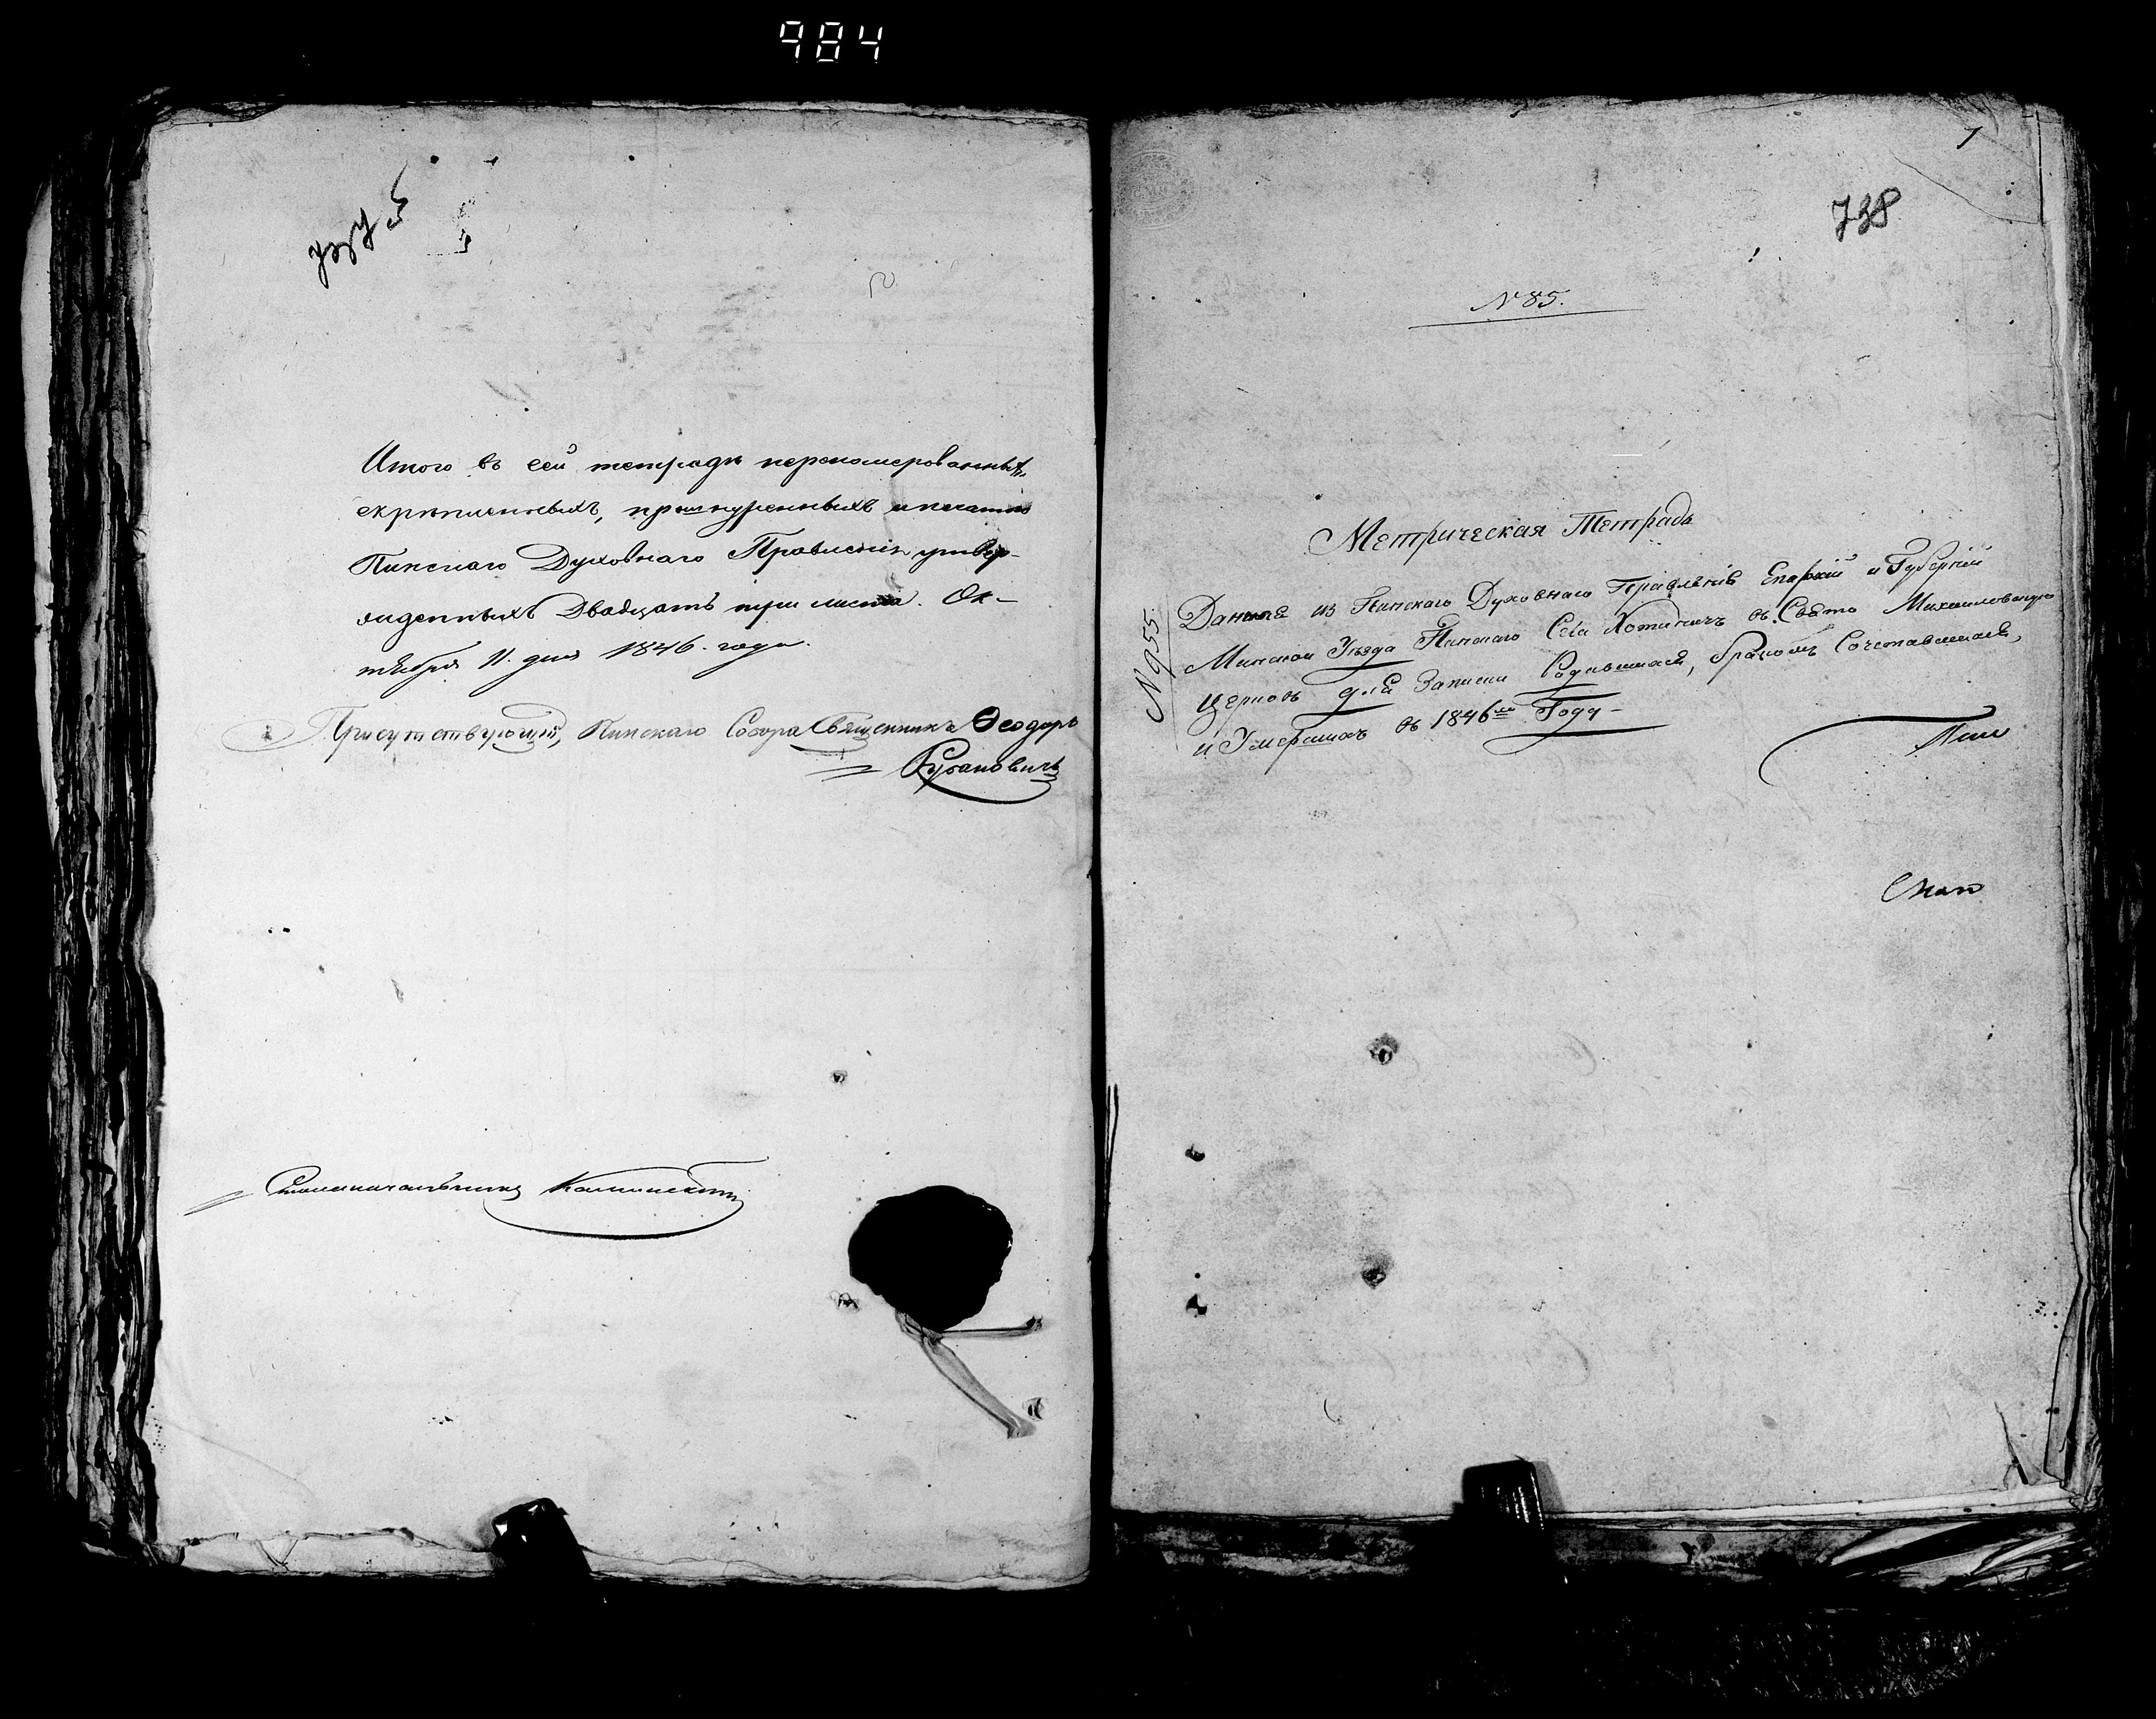 984
Итого въ сей тетради перенумерованныхъ,
скрѣпленныхъ, прошнуренныхъ и печатью
Пинскаго Духовнаго Правленія утвер-
жденныхъ Двадцать три листа. Ок-
тября 11. дня 1846. года.
Присутствующій, Пинскаго Собора Священникъ Ѳеодоръ
Рубановичъ
Столоначальникъ
1
738
№ 85.
Метрическая Тетрадь
№ 955.
Данная из Пинскаго Духовнаго Правленія Епархіи и Губерніи
Минской Уѣзда Пинскаго Села Хотиничъ въ Свято Михайловскую
Церковь для Записки Родившихся, бракомъ Сочетавшихся,
и Умершихъ въ 1846мъ Году -